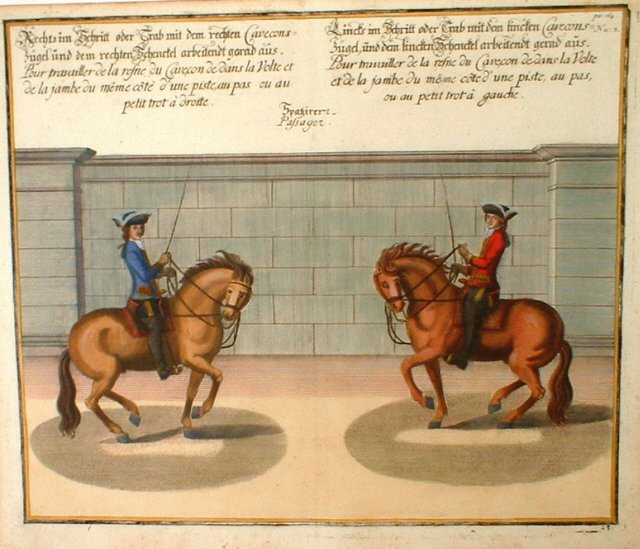 Rechts im Schritt oder Trab mit dem rechten Caveçons=
zügel und dem rechten Schenckel arbeitendt gerad aüs.
Pour travailler de la resne du Caveçon de dans la Volte et
de la jambe du même côté d'une piste, au pas ou au
petit trot à droitte.
Lincks im Schritt oder Trab mit dem lincken Caveçons=
zügel, und dem lincken Schenckel arbeitendt gerad aus.
Pour travailler de la resne du Caveçon de dans la Volte
et de la jambe du même côté d'une piste, au pas,
ou au petit trot à gauche.
Passager.